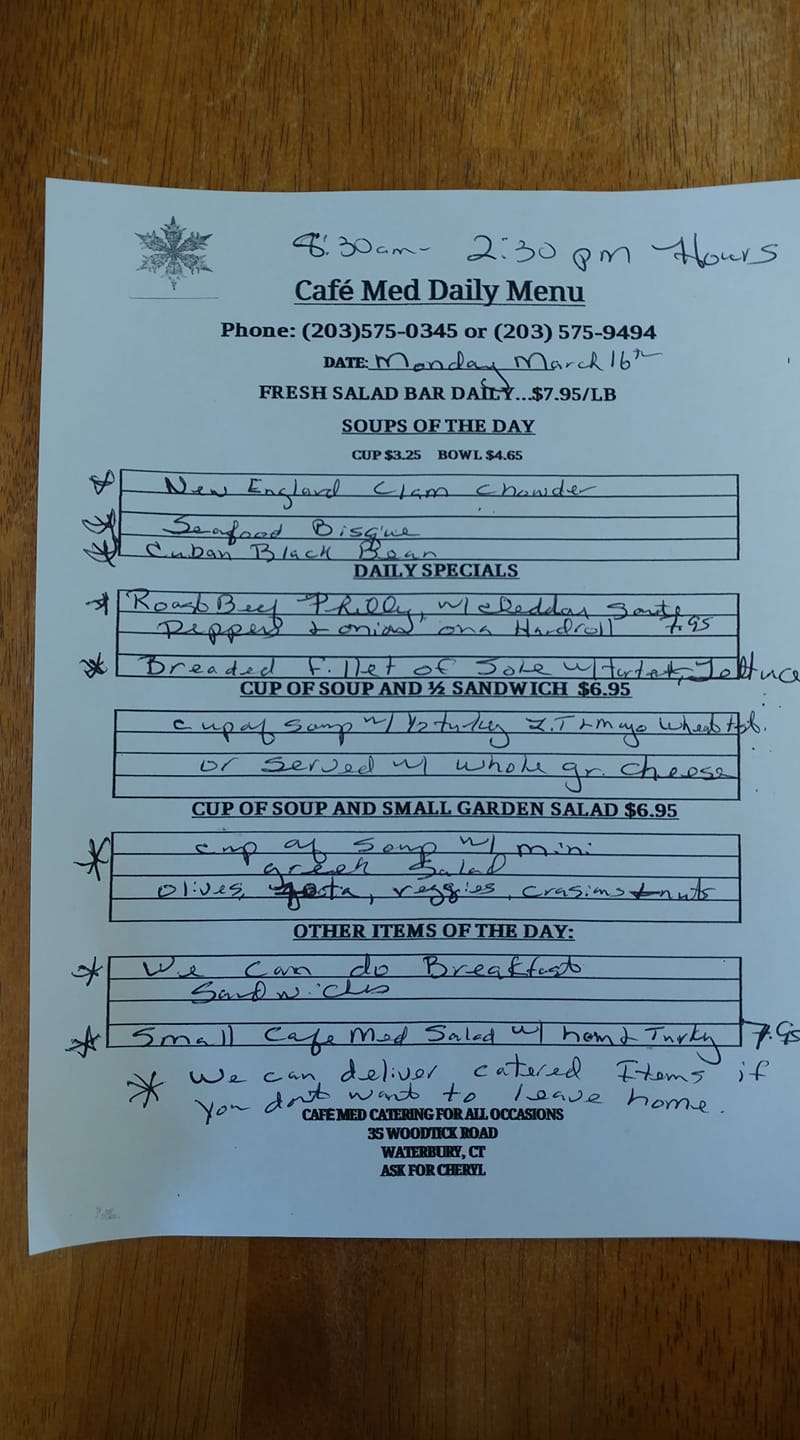 8:30am - 2:30 pm Hours
Café Med Daily Menu
Phone: (203)575-0345 or (203) 575-9494
DATE: Monday March 16th
FRESH SALAD BAR DAILY...$7.95/LB
SOUPS OF THE DAY
CUP $3.25 BOWL $4.65
New England Clam Chowder
Seafood Bisque
Cuban Black Bean
DAILY SPECIALS
Roast Beef Philly, w/ cheddar Saute
Peppers & onions on a Hardroll 7.95
Breaded Fillet of Sole w/
CUP OF SOUP AND ½ SANDWICH $6.95
cup of soup w/ 1/2 turkey L.T & mayo wheat
or served w/ whole gr. cheese
CUP OF SOUP AND SMALL GARDEN SALAD $6.95
cup of soup w/ mini
greek Salad
olives, veggies, crasins & nuts
OTHER ITEMS OF THE DAY:
We can do Breakfast
Sandwiches
Small Cafe Med Salad w/ ham & Turky 7.95
We can deliver catered Items if
you dont want to leave home.
CAFÉ MED CATERING FOR ALL OCCASIONS
35 WOODTICK ROAD
WATERBURY, CT
ASK FOR CHERYL